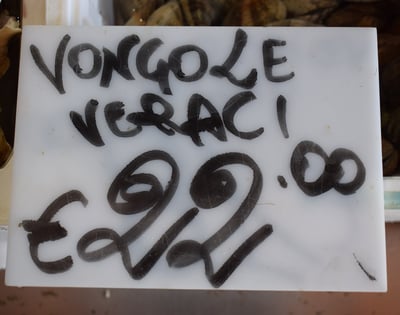 VONGOLE
VERACI
€22.00